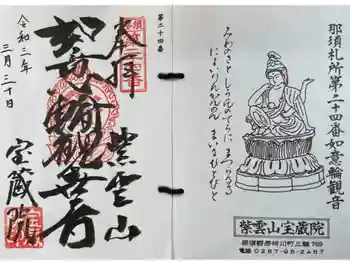 那須札所第二十四番如意輪観音
みわのさと しうんのてらに まうつなる
によいりんかんのん まいるひとびと
紫雲山宝蔵院
那須郡那珂川町三輪769
電〒0287-96-2487
第二十四番
奉拝
紫雲山
如意輪観世音
宝蔵院
令和三年
三月三十日